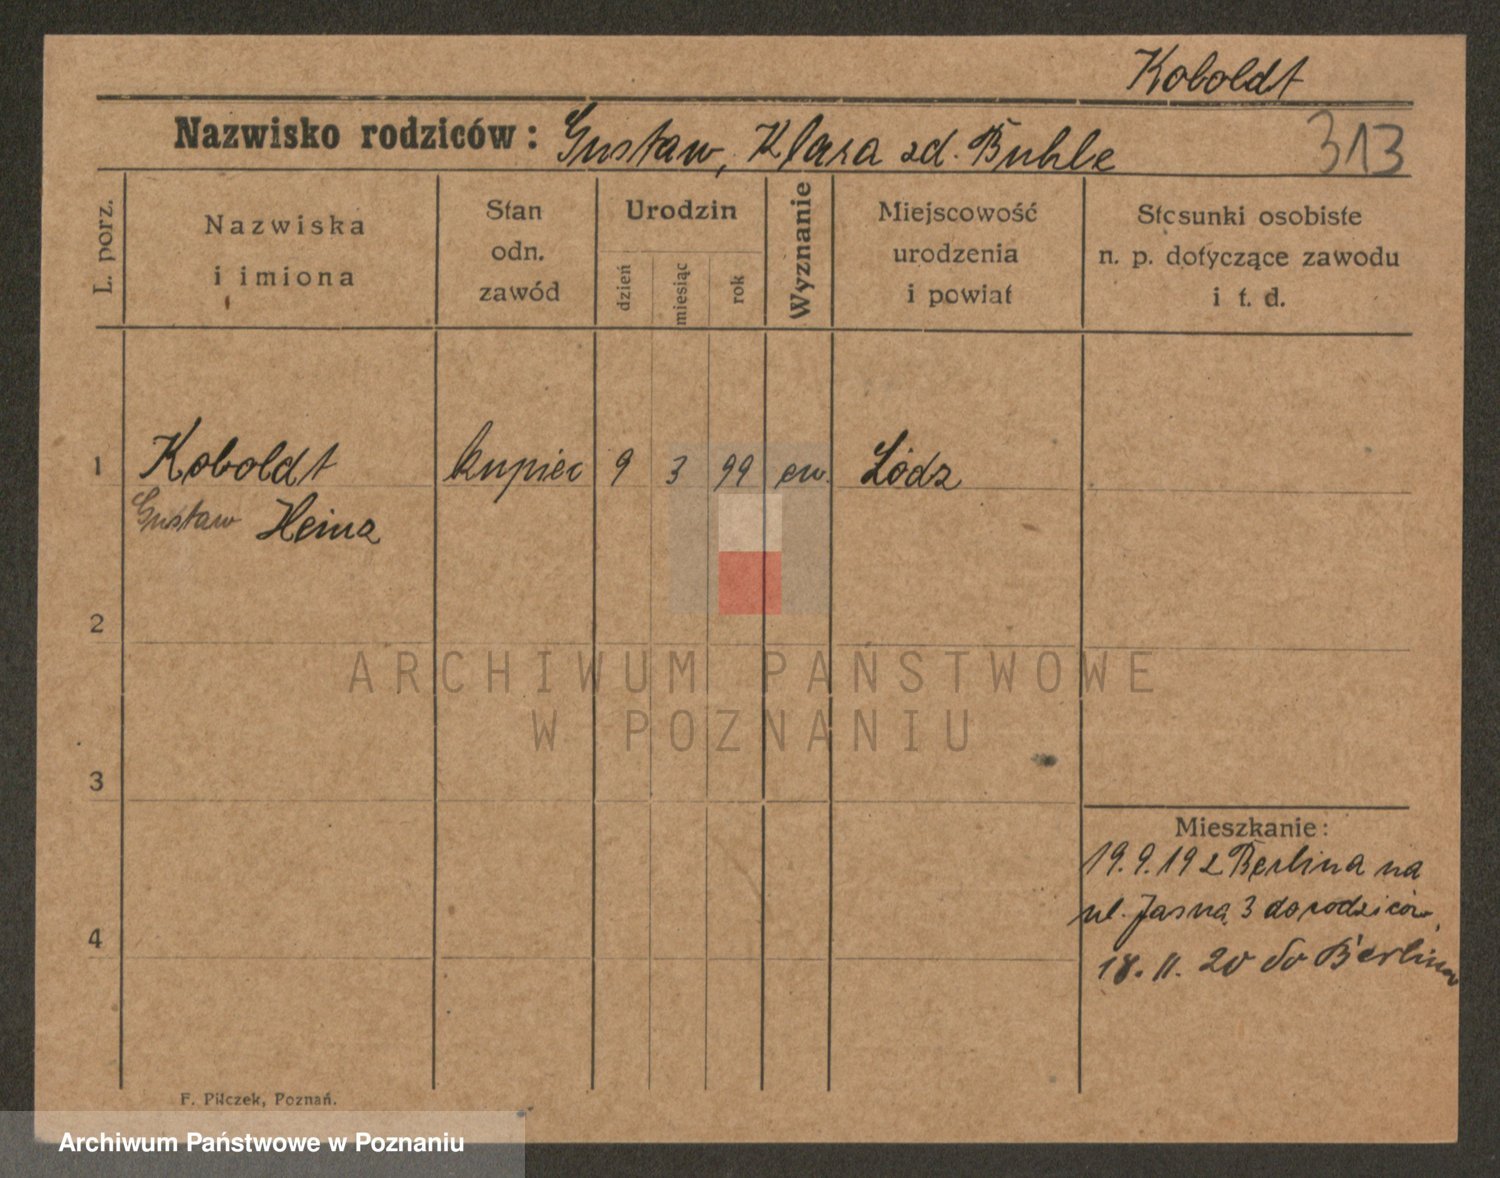 Koboldt
Nazwisko rodziców: Gustaw, Klara zd. Buhle 313
L. porz.
Nazwiska
i imiona
Stan
odn.
zawód
Urodzin
dzień
miesiąc
rok
Wyznanie
Miejscowość
urodzenia
i powiat
Stosunki osobiste
n. p. dotyczące zawodu
i t. d.
1 Koboldt kupiec 9 3 99 ew. Łódz
Gustaw Heinz
2
ARCHIWUM PAŃSTWOWE
W POZNANIU
3
Mieszkanie:
19.9.19 z Berlina na
ul. Jasną 3 do rodziców,
4
18. II. 20 do Berlina
F. Pilczek, Poznań.
Archiwum Państwowe w Poznaniu